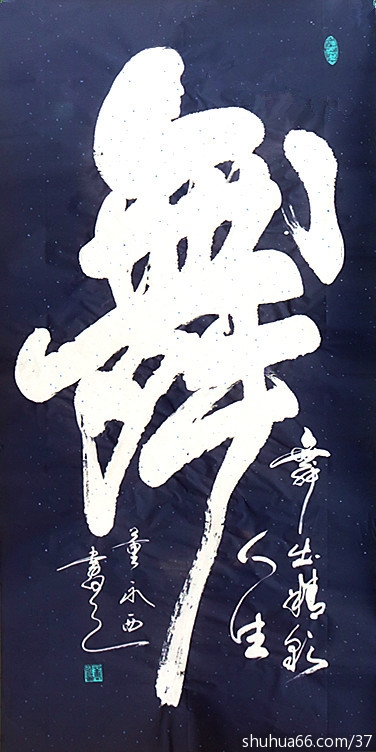 舞
舞出精彩
人生
董永西
書之
shuhua66.com/37